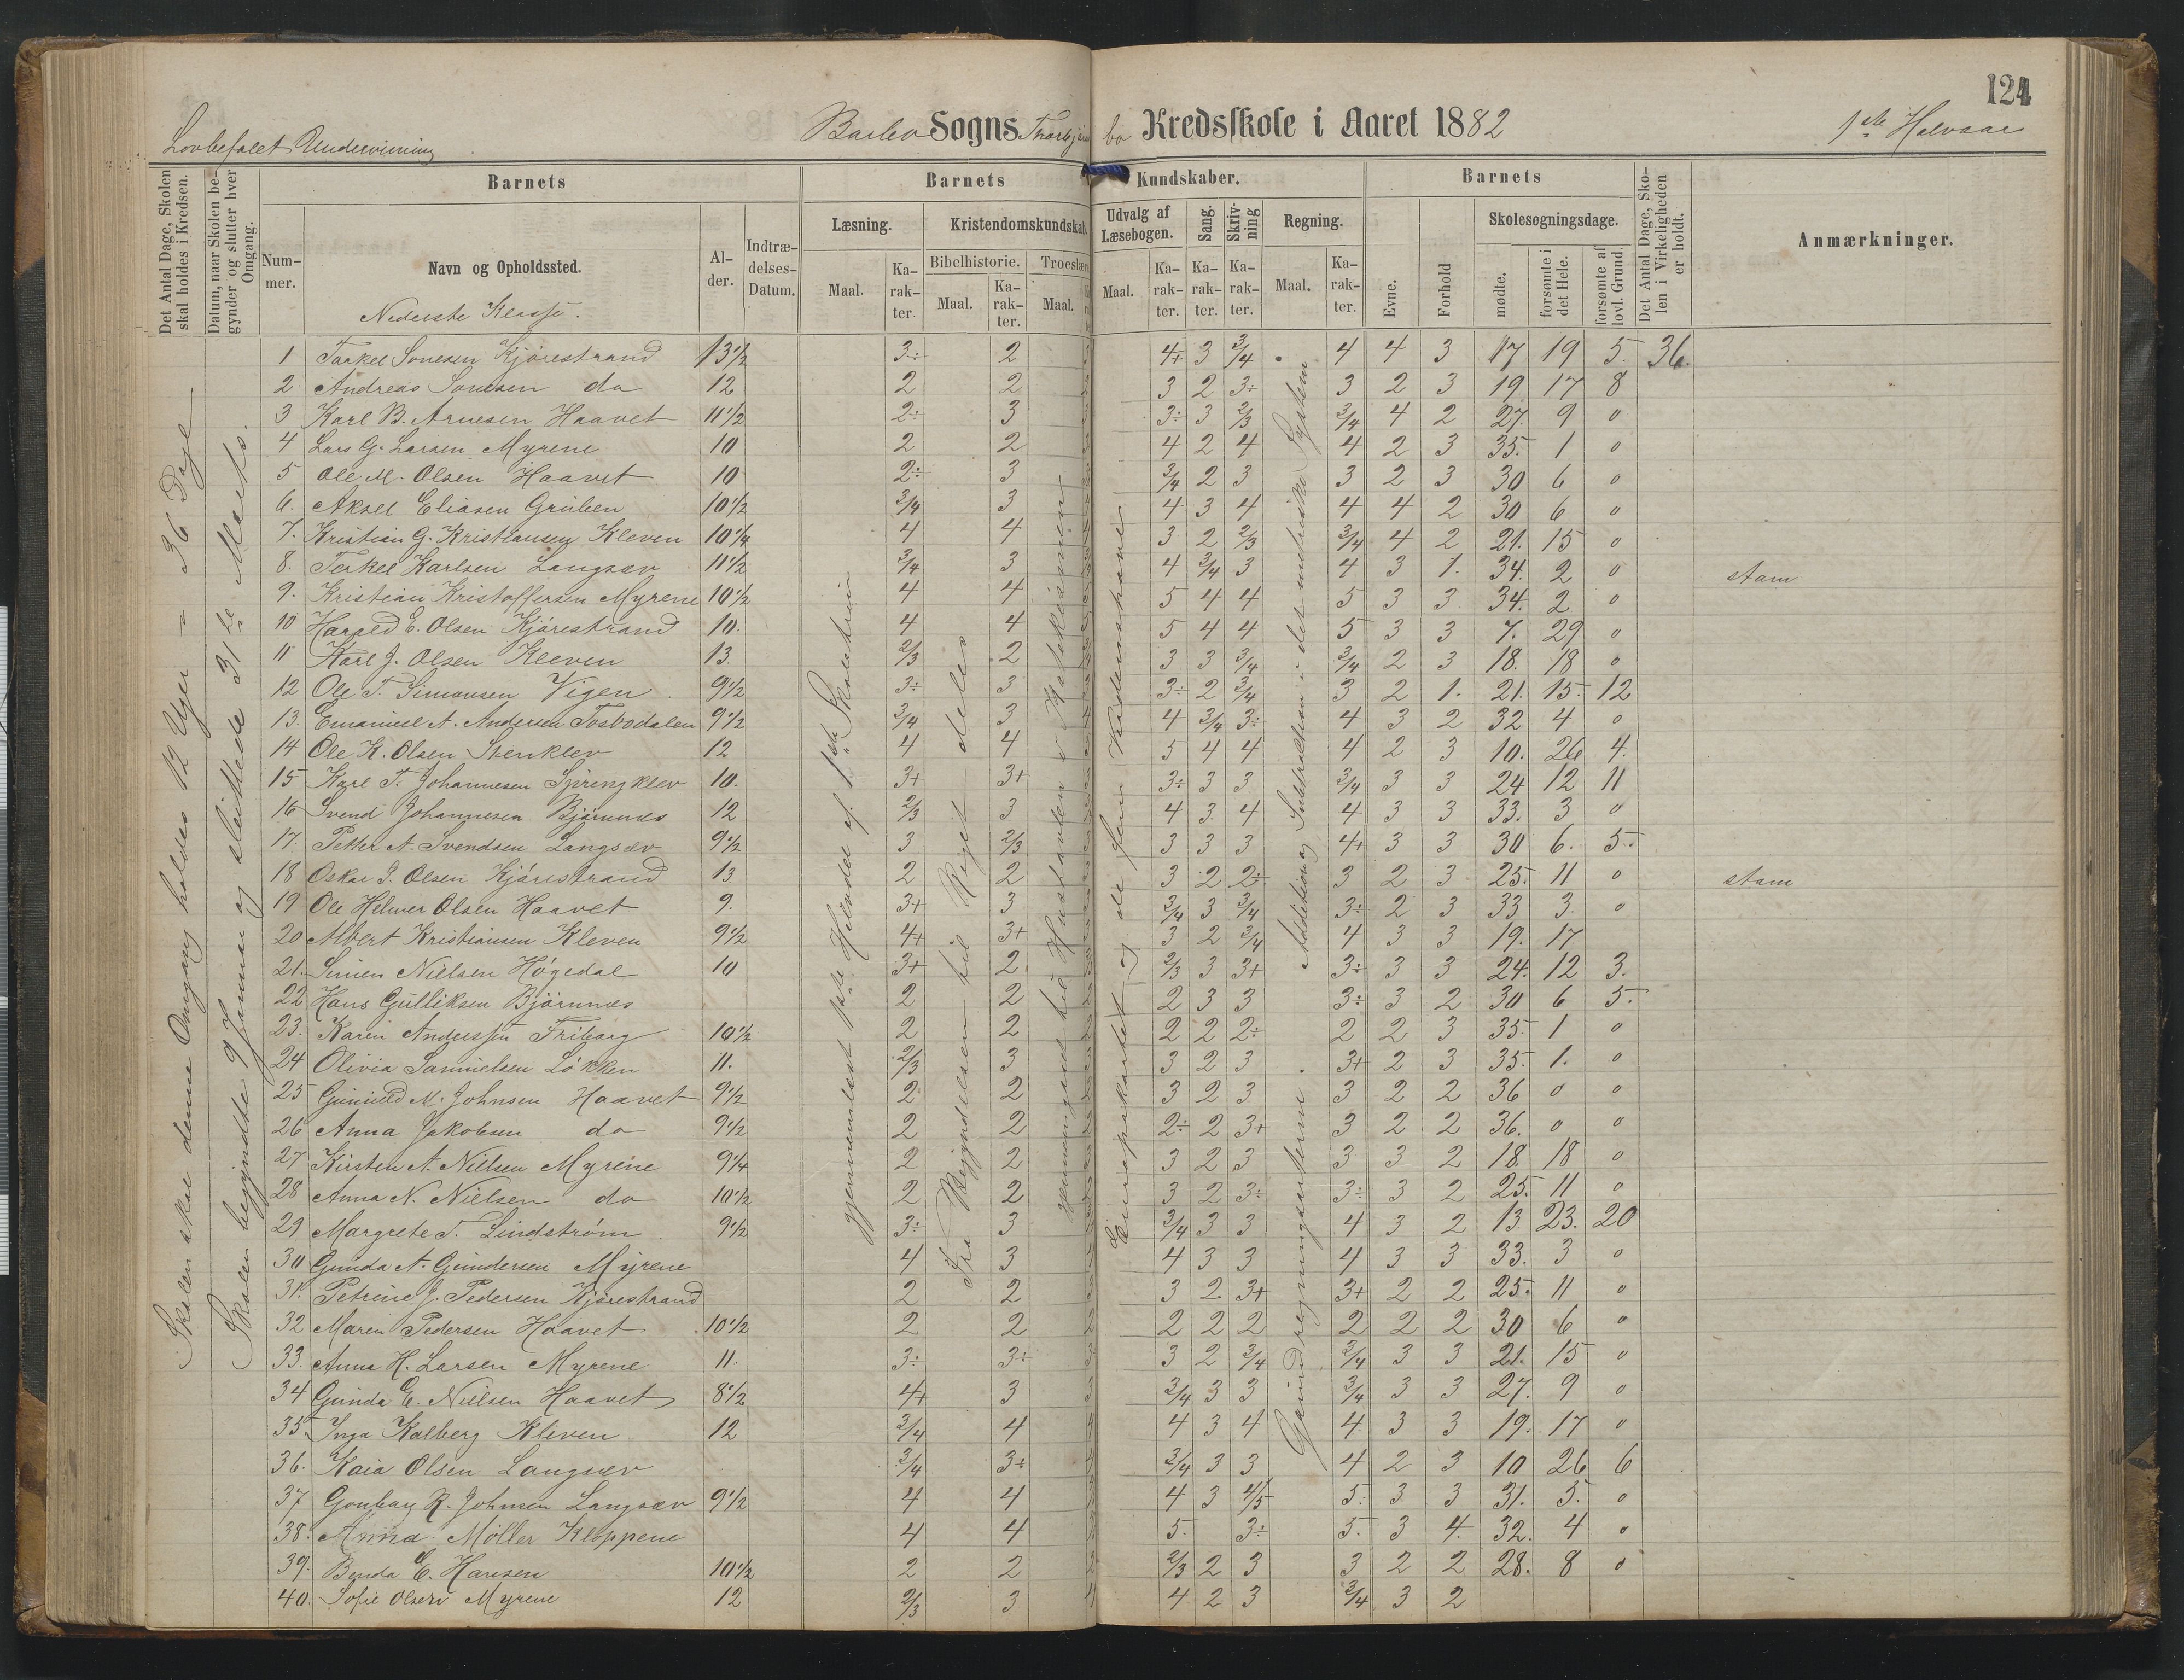 124
Lovbefalet Undervisning
Barbo Sogns Thorbjørnsbo Kredsskole i Aaret 1882
1ste Halvaar
Det Antal Dage, Skolen skal holdes i Kredsen.
Datum, naar Skolen begynder og slutter hver Omgang.
Barnets
Barnets Kundskaber.
Barnets
Det Antal Dage, Skolen i Virkeligheden er holdt.
Anmærkninger.
Nummer.
Navn og Opholdssted.
Alder.
Indtrædelses-Datum.
Læsning.
Kristendomskundskab.
Udvalg af Læsebogen.
Sang.
Skrivning
Regning.
Evne.
Forhold
Skolesøgningsdage.
Bibelhistorie.
Troeslære
Maal.
Karakter.
Maal.
Karakter.
Maal.
Maal.
Karakter.
Karakter.
Karakter.
Maal.
Karakter.
mødte.
forsømte i det Hele.
forsømte af lovl. Grund.
Nederste Klasse.
Skolen skal denne Omgang holdes 12 Uger = 36 Dage
Skolen begyndte 9 Januar og sluttede 31te Marts.
gjennemlæst Halvdel af 1ste Skoletrin
Fra Begyndelsen til Riget deles
gjennemgaaet Hustavlen i Katekismen
Europakartet og de fem Verdenshavene
Grundregningsarterne. Addition og Subtraktion i det metriske System
1 Torkel Sonesen Kjørestrand 13 1/2 3÷ 2 4+ 3 3/4 4 4 3 17 19 5. 36.
2 Andreas Sonesen do 12 2 2 3 2 3÷ 3 2 3 19 17 8
3 Karl B. Arnesen Haavet 11 1/2 2÷ 3 3÷ 3 2/3 3/4 4 2 27. 9 0
4 Lars G. Larsen Myrene 10 2 2 4 2 4 4 2 3 35. 1 0
5 Ole M. Olsen Haavet 10 2÷ 3 3/4 2 3 3 2 3 30 6 0
6. Aksel Eliasen Gruben 10 1/2 3/4 3 4 3 4 4 4 2 30 6 0
7. Kristian G. Kristiansen Kleven 10 1/4 4 4 3 2 2/3 3/4 4 2 21. 15 0
8. Terkel Karlsen Langsæv 11 1/2 3/4 3 4 3/4 3 4 3 1. 34. 2 0 stam
9. Kristian Kristoffersen Myrene 10 1/2 4 4 5 4 4 5 3 3 34. 2 0
10 Harald E. Olsen Kjørestrand 10. 4 4 5 4 4 5 3 3 7. 29 0
11 Karl J. Olsen Kleven 13. 2/3 2 3 3 3/4 3/4 2 3 18. 18 0
12 Ole T. Simonsen Vigen 9 1/2 3÷ 3 3÷ 2 3/4 3 2 1. 21. 15. 12
13. Emanuel A. Andersen Tosbodalen 9 1/2 3/4 3 4 3/4 3÷ 4 3 2 32 4 0
14 Ole K. Olsen Stenklev 12 4 4 5 4 4 4 2 3 10. 26 4.
15 Karl T. Johannesen Springklev 10. 3+ 3+ 3÷ 3 3 3/4 3 3 24 12 11
16 Svend Johannesen Bjørnnes 12 2/3 3 4 3 4 4 3 3 33. 3 0
17. Petter A. Svendsen Langsæv 9 1/2 3 2/3 3 3 3 4+ 3 3 30 6. 5.
18 Oskar J. Olsen Kjørestrand 13 2 2 3 2 2÷ 3 2 3 25. 11 0 stam
19 Ole Helmer Olsen Haavet 9. 3+ 3 3/4 3 3/4 3÷ 2 3 33 3. 0
20 Albert Kristiansen Kleven 9 1/2 4+ 3+ 3 2 3/4 4 3 3 19. 17
21. Simen Nielsen Høgedal 10 3+ 2. 2/3 3 3+ 3÷ 3 3 24. 12 3.
22 Hans Gulliksen Bjørnnes 2 2 2 3 3 3÷ 3 2 30 6 5.
23. Karen Anderssen Friborg 10 1/2 2 2 2 2 2÷ 2 2 3 35. 1 0
24 Olivia Samuelsen Løkken 11. 2/3 3 3 2 3 3+ 2 3 35. 1. 0
25 Gunuld M. Johnsen Haavet 9 1/2 2 2 3 2 3 3 2 2 36 0 0
26 Anna Jakobsen do 9 1/2 2 2 2÷ 2 3+ 3 2 2 36. 0 0
27 Kirsten A. Nielsen Myrene 9 1/4 2 2 3 2 3 3 3 2 18. 18 0
28 Anna N. Nielsen do 10 1/2 2 2 3 2 3÷ 3÷ 3 2 25. 11 0
29 Margrete T. Lindstrøm 9 1/2 3÷ 3 3/4 3 3 4 3 2 13 23. 20
30 Gunda A. Gundersen Myrene 4 3 4 3 3 4 3 3 33. 3 0
31. Petrine J. Pedersen Kjørestrand 2 2 3 2 3+ 3+ 2 2 25. 11 0
32 Maren Pedersen Haavet 10 1/2 2 2 2 2 2 2 2 2 30 6 0
33. Anna H. Larsen Myrene 11. 3÷ 3÷ 3 2 3/4 3/4 3 3 21. 15 0
34 Gunda E. Nielsen Haavet 8 1/2 4+ 3 3/4 3 3 3/4 3 3 27. 9 0
35 Inga Kalberg Kleven 12 3/4 4 4 3 4 4 3 3 19. 17 0
36. Kaia Olsen Langsæv 3/4 3÷ 3/4 3 3 4 2 3 10 26 6
37 Gonbay R. Johnsen Langsæv 9 1/2 4 4 4 3 4/5 5÷ 3 3 31. 5. 0
38. Anna Møller Kloppene 4 4 5. 3÷ 5. 3 4. 32. 4 0
39. Benda E. Hansen 10 1/2 2 2 2/3 2 3 3 2 2 28. 8 0
40. Sofie Olsen Myrene 12 2/3 3 4 2 3 3/4 3 2